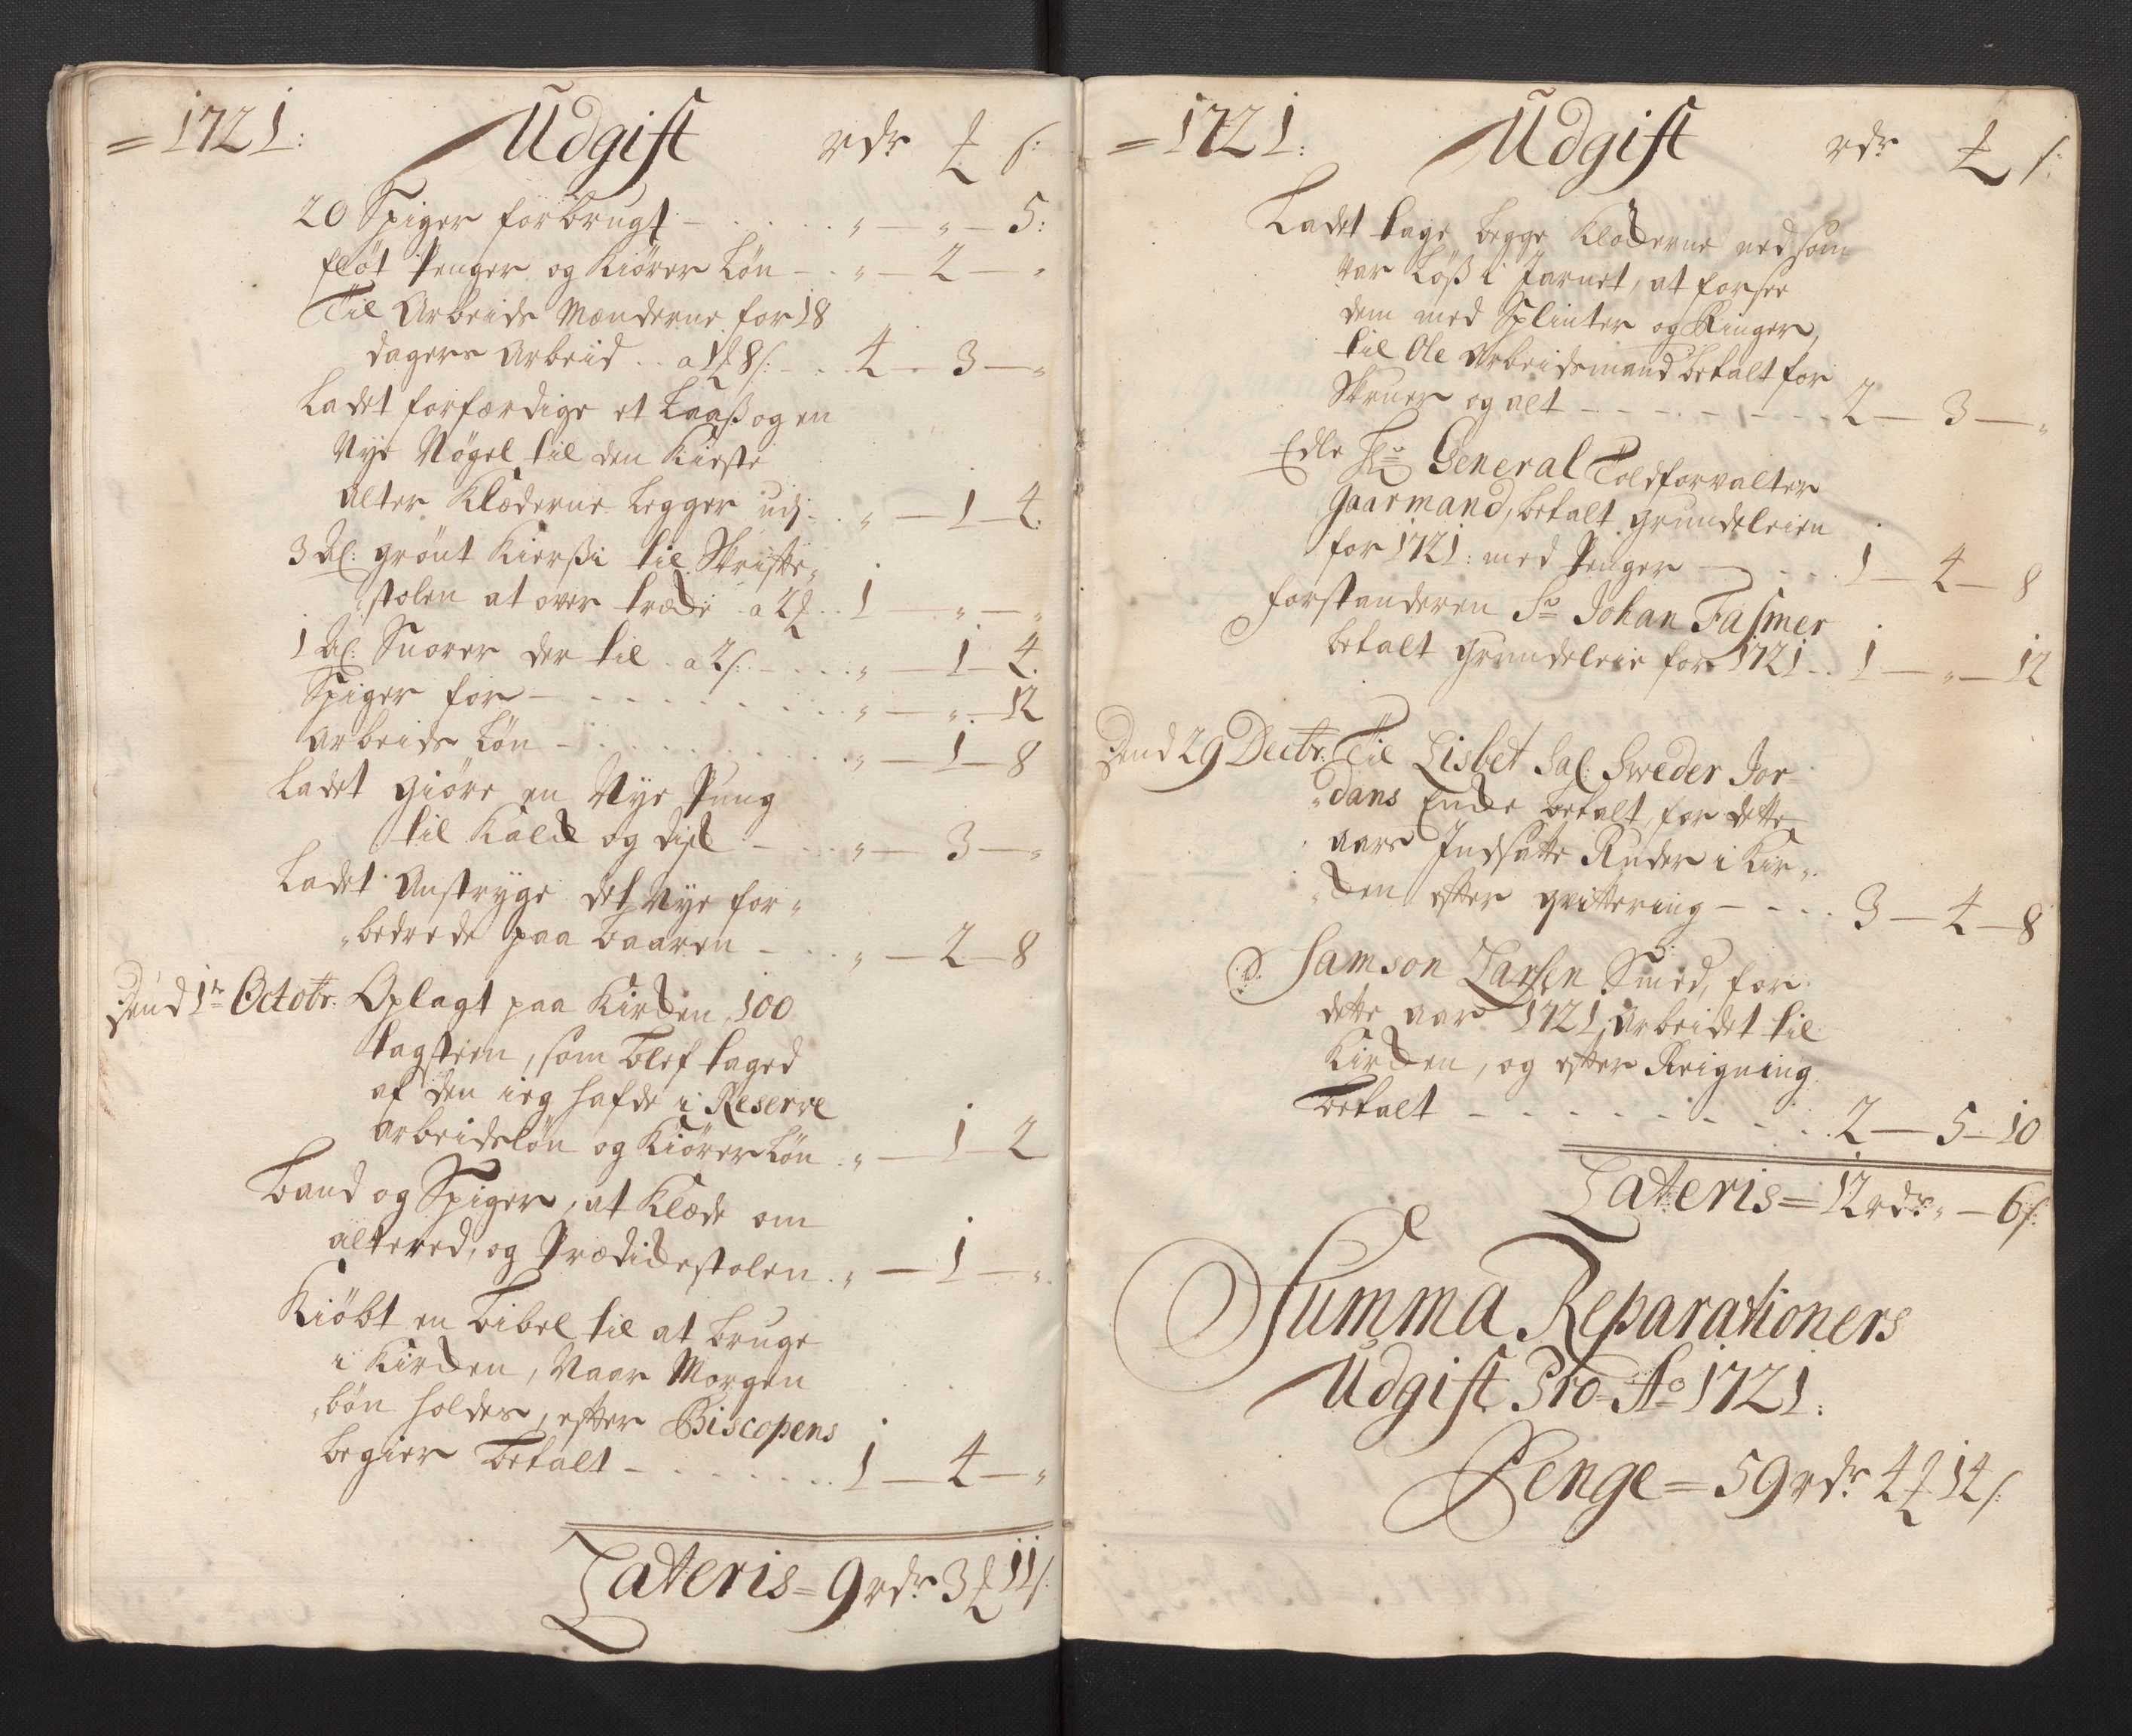 = 1721: Udgift rdr ₰ s:
20 Spiger forbrugt - . . . . " — " — 5:
fløt Penger og Kiører Løn - . " — 2 — "
Til Arbeids Mænderne for 18
dagers Arbeid . . a 1₰ 8s: - . . 4 - 3 — "
Ladet forfærdige et Laaß og en
Nye Nögel til den Kieste
Alter Klæderne legger udj - . . " — 1 — 4.
3 Al: grönt Kierßi til Skrifte„
„stolen at over træde a 2₰ . . 1 — " — "
1 Al: Snorer der til . a 2s: - . . . " — 1 — 4.
Spiger for - . . . . . . . " — " — 12
Arbeids Løn - . . . . . . . " — 1 — 8
Ladet giöre en Nye Pung
til Kalck og Disk - . . . " — 3 — "
Ladet Anstryge det Nye for„
„bedrede paa Baaren - . . . " — 2 — 8
Dend 1te Octobr: Oplagt paa Kircken 100
tagsteen, som blef taged
af den ieg hafde i Reserve
Arbeidsløn og Kiører Løn . " — 1 — 2
Band og Spiger, at Klæde om
altered, og Prædickestolen . " — 1 — "
Kiöbt en Bibel til at bruge
i Kircken, Naar Morgen
„bön holdes, efter Biscopens
begier betalt - . . . . . . 1 — 4 — "
Lateris = 9 rdr 3₰ 11s:
= 1721: Udgift rdr ₰ s:
Ladet tage begge Klockerne ned som
var Löß i Jarnet, at forsee
dem med Splinter og Ringer,
til Ole Arbeidsmand betalt for
Skruer og alt - - - - - - - 2 — 3 — "
Edle Hr General Toldforvalter
Gaarmand, betalt grundeleien
for 1721: med Penger - . . . 1 — 4 — 8
Forstanderen Sr Johan Fasmer
betalt Grundeleie for 1721 . . 1 — " — 12
Dend 29 Decbr: Til Lisbet Sal: Sweder Jor
„dans Encke betalt for dette
aars Indsatte Ruder i Kir„
„cken efter qvittering - - . . 3 — 4 — 8
Samson Larsen Smed, for
dette aar 1721 Arbeidet til
Kircken, og efter Reigning
betalt - - . . . . . . . 2 — 5 — 10
Lateris = 12 rdr " — 6s:
Summa Reparationers
Udgift Pro Ao 1721:
Penge = 59 rdr 4₰ 14s: